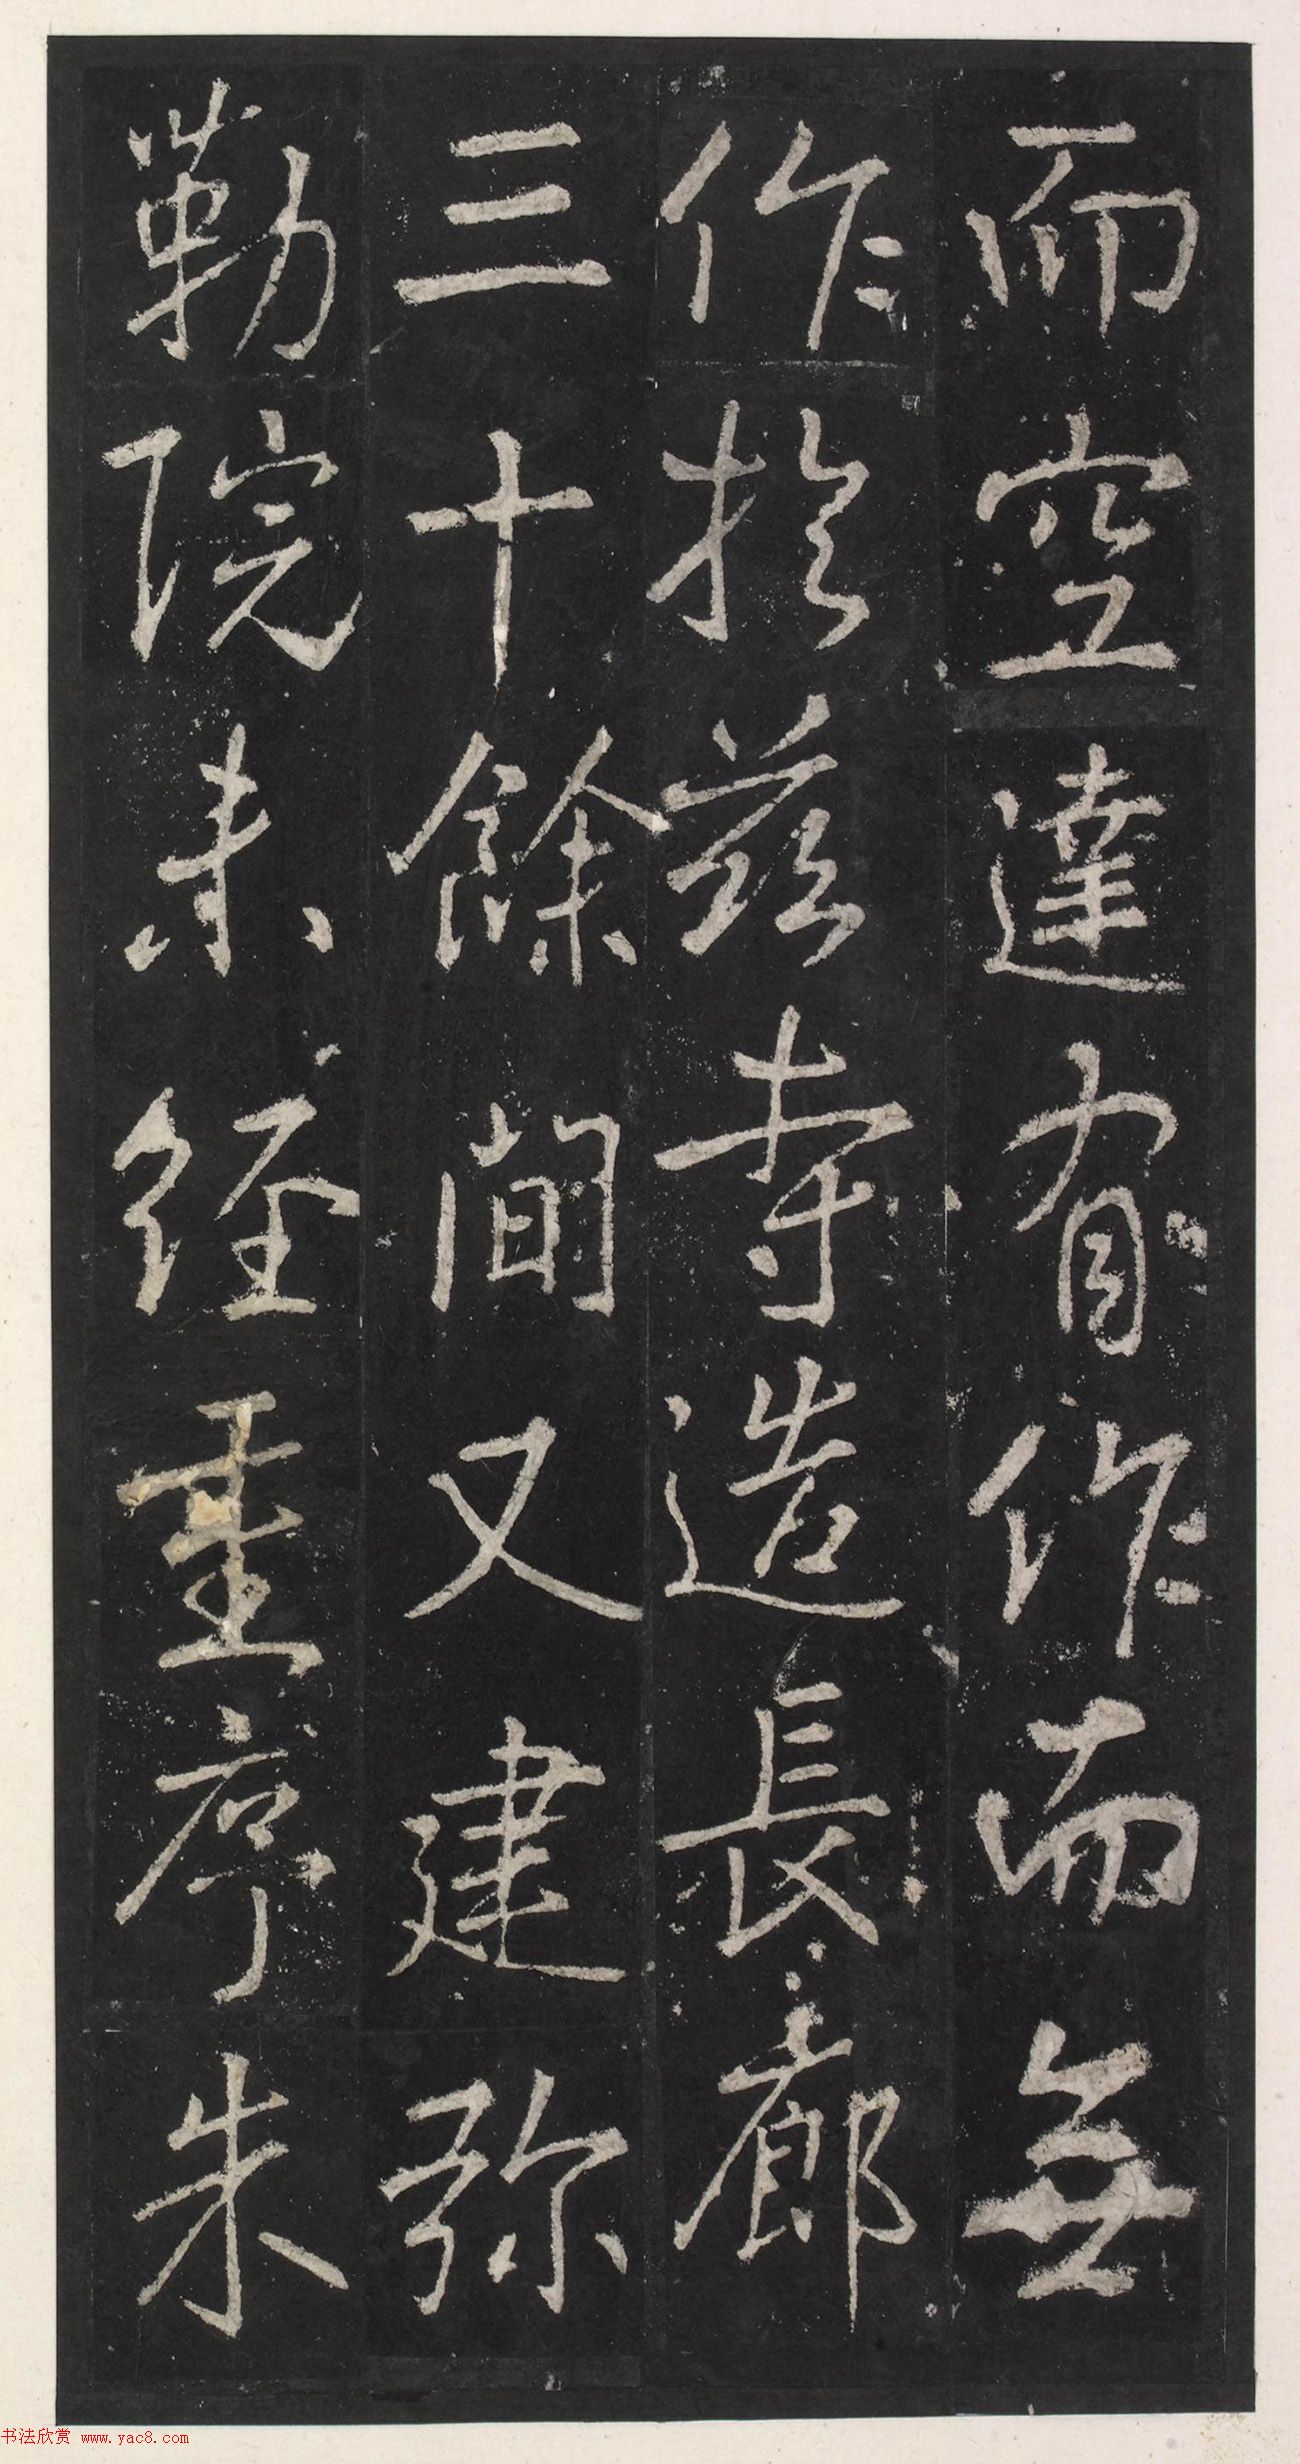 而空達有作而無
作於茲寺造長廊
三十餘間又建弥
勒院未經重序朱
书法欣赏 www.yac8.com